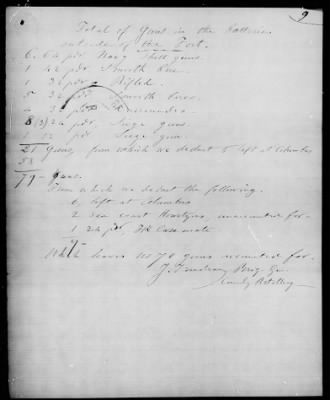 9
Total of Guns in the Batteries
outside of the Fort.
6. 64 pdr Navy Shell guns.
1 42 pdr Smooth Bore
1 32 pdr Rifled
5 32 pdr Smooth bores
4 32 pdr
8 24 pdr Siege guns
1 12 pdr Siege gun.
Guns, from which we deduct 6 left at Columbus
58
79 Guns.
From which we deduct the following.
6 left at Columbus
2 sea coast Howitzers, unaccounted for.
1 24 pdr Casemate
9
Which leaves us 70 guns accounted for.
Brig Gen